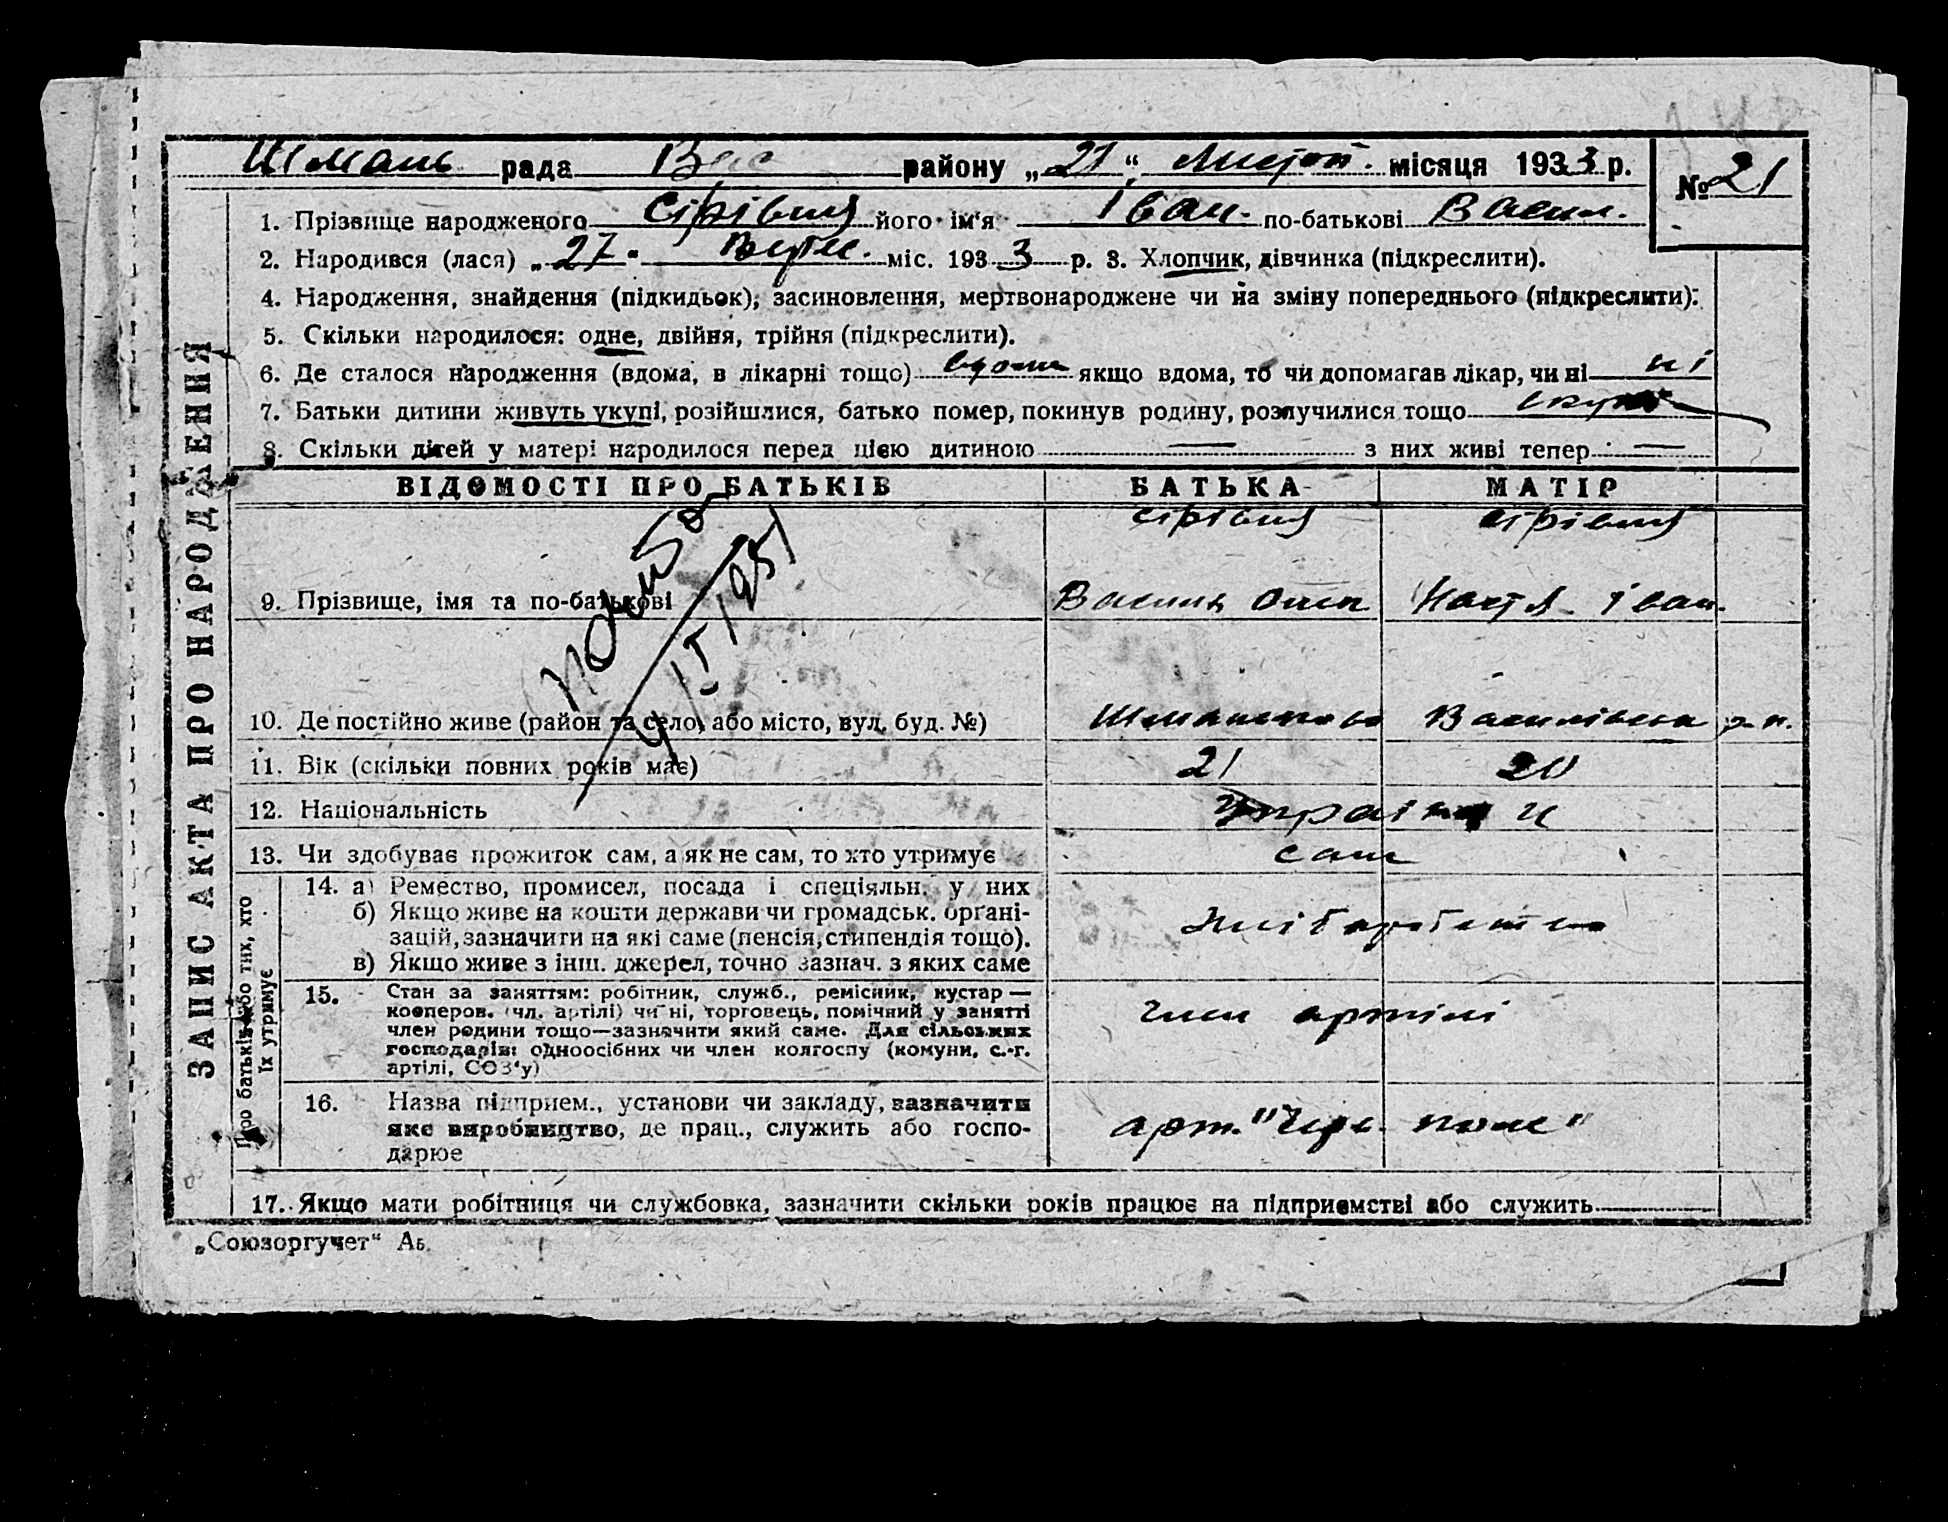 Шмань рада Вас району „21“ Листоп. місяця 1933 р. № 21
1. Прізвище народженого Сірівля його ім'я Іван. по-батькові Васил.
2. Народився (лася) „27" Верес. міс. 1933 р. 3. Хлопчик, дівчинка (підкреслити).
4. Народження, знайдення (підкидьок), засиновлення, мертвонароджене чи на зміну попереднього (підкреслити):
5. Скільки народилося: одне, двійня, трійня (підкреслити).
6. Де сталося народження (вдома, в лікарні тощо) вдома якщо вдома, то чи допомагав лікар, чи ні ні
7. Батьки дитини живуть укупі, розійшлися, батько помер, покинув родину, розлучилися тощо
8. Скільки дітей у матері народилося перед цією дитиною — з них живі тепер —
ЗАПИС АКТА ПРО НАРОДЖЕННЯ
ВІДОМОСТІ ПРО БАТЬКІВ БАТЬКА МАТІР
Сірівля Сірівля
9. Прізвище, імя та по-батькові Василь Настя Іван.
10. Де постійно живе (район та село, або місто, вул. буд. №) Василівськ р-н.
11. Вік (скільки повних років має) 21 20
12. Національність Українці
13. Чи здобуває прожиток сам, а як не сам, то хто утримує сам
Про батьків або тих, хто їх утримує
14. а) Ремество, промисел, посада і спеціяльн. у них
б) Якщо живе на кошти держави чи громадськ. органі-
зацій, зазначити на які саме (пенсія, стипендія тощо).
в) Якщо живе з інш. джерел, точно зазнач. з яких саме
хліборобство
15. Стан за заняттям: робітник, служб., ремісник, кустар —
кооперов. (чл. артілі) чи ні, торговець, помічний у занятті
член родини тощо—зазначити який саме. Для сільських
господарів: одноосібних чи член колгоспу (комуни, с.-г.
артілі, СОЗ'у)
член артілі
16. Назва підприєм., установи чи закладу, зазначити
яке виробництво, де прац., служить або госпо-
дарює
арт. "Черв. поле"
17. Якщо мати робітниця чи службовка, зазначити скільки років працює на підприємстві або служить
„Союзоргучет“ Аб.